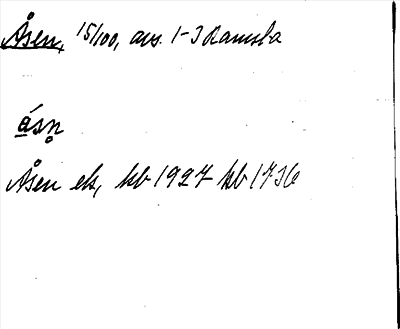 Åsen, 15/100, avs. 1-3 Ramsla
ásn̥
Åsen ek, kb 1927 hb 1736